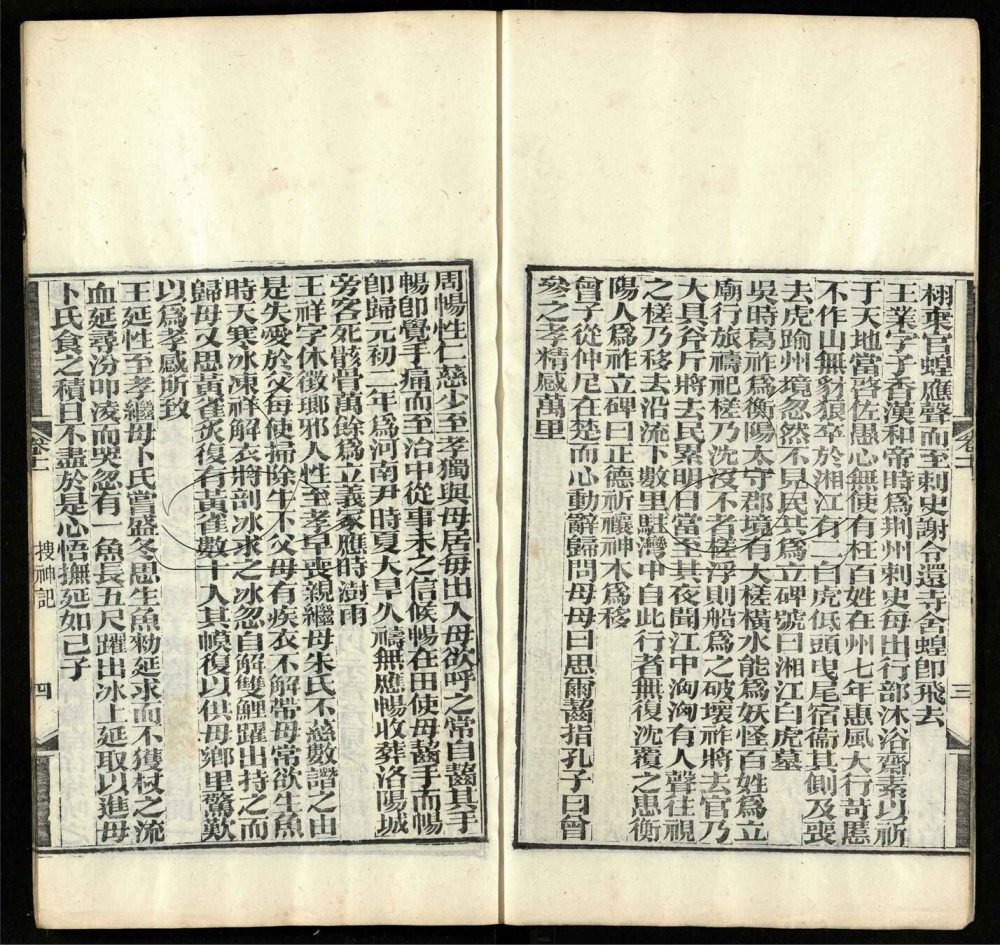 栩棄官蝗應聲而至刺史謝令還寺舍蝗卽飛去
王業字子香漢和帝時爲荆州刺史每出行部沐浴齋素以祈
于天地當啓佐愚心無使有枉百姓在州七年惠風大行苛慝
不作山無豺狼卒於湘江有二白虎低頭曳尾宿衞其側及喪
去虎踰州境忽然不見民共爲立碑號曰湘江白虎墓
吳時葛祚爲衡陽太守郡境有大槎橫水能爲妖怪百姓爲立
廟行旅禱祀槎乃沈沒不者槎浮則船爲之破壞祚將去官乃
大具斧斤將去民累明日當至其夜聞江中洶洶有人聲往視
之槎乃移去沿流下數里駐灣中自此行者無復沈覆之患衡
陽人爲祚立碑曰正德祈禳神木爲移
曾子從仲尼在楚而心動辭歸問母母曰思爾齧指孔子曰曾
參之孝精感萬里
卷十一
三
周暢性仁慈少至孝獨與母居每出入母欲呼之常自齧其手
暢卽覺手痛而至治中從事未之信候暢在田使母齧手而暢
卽歸元初二年爲河南尹時夏大旱久禱無應暢收葬洛陽城
旁客死骸骨萬餘爲立義冢應時澍雨
王祥字休徵瑯邪人性至孝早喪親繼母朱氏不慈數譖之由
是失愛於父每使掃除牛下父母有疾衣不解帶母常欲生魚
時天寒冰凍祥解衣將剖冰求之冰忽自解雙鯉躍出持之而
歸母又思黃雀炙復有黃雀數十入其幙復以供母鄉里驚歎
以爲孝感所致
王延性至孝繼母卜氏嘗盛冬思生魚勑延求而不獲杖之流
血延尋汾叩淩而哭忽有一魚長五尺躍出冰上延取以進母
卜氏食之積日不盡於是心悟撫延如己子
卷十一
搜神記
四